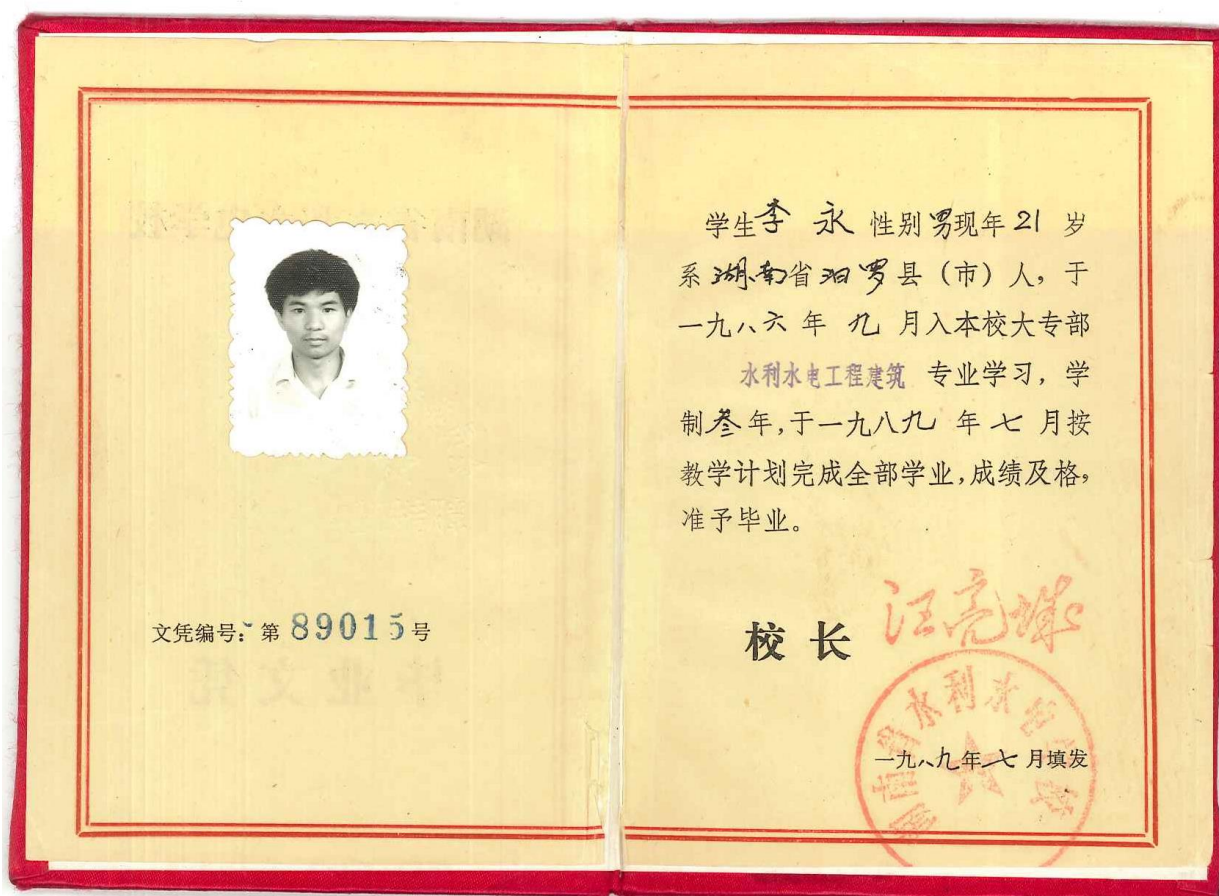 文凭编号:第89015号
学生李永性别男现年21岁
系湖南省汨罗县（市）人，于
一九八六年九月入本校大专部
水利水电工程建筑 专业学习，学
制叁年，于一九八九年七月按
教学计划完成全部学业，成绩及格，
准予毕业。
校长 汪亮
湖南省水利水电学校
一九八九年七月填发